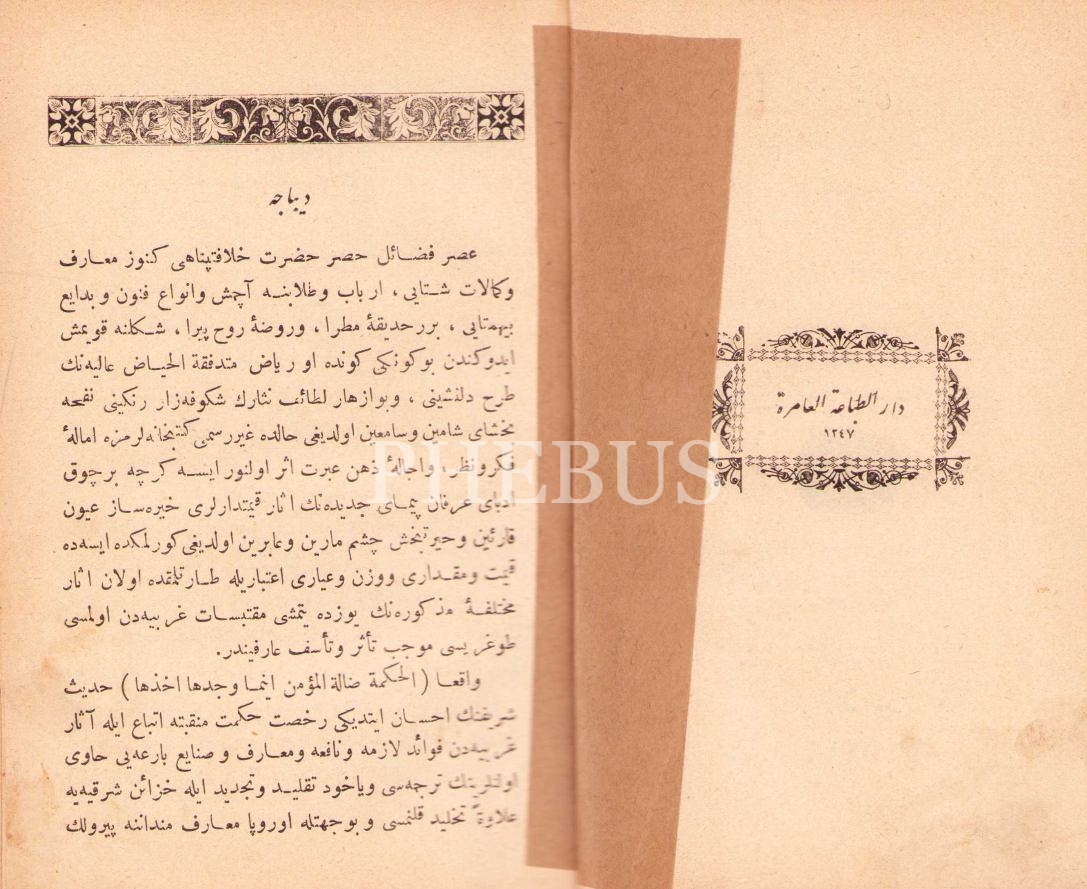 دار الطباعة العامرة
١٢٤٧
ديباجه
عصر فضائل حصر حضرت خلافتپناهی كنوز معارف
وكمالات شتايی، ارباب وطلابنه آچمش وانواع فنون وبدايع
بيهمتايی، بررحديقهٔ مطرا، وروضهٔ روح پيرا، شكلنه قويمش
ايدوكندن بوكونكی كونده او رياض متدفقة الحياض عاليه‌نك
طرح دلنشينی، وبوازهار لطائف نثارك شكوفه‌زار رنكينی نفحه
بخشای شامين وسامعين اولديغی حالده غيررسمی كتبخانه‌لرمزه امالهٔ
فكرونظر، واجالهٔ ذهن عبرت اثر اولنور ايسه كرچه برچوق
ادبای عرفان پيمای جديده‌نك اثار قيمتدارلری خيره‌ساز عيون
قارئين وحيرتبخش چشم مارين وعابرين اولديغی كورلمكده ايسه‌ده
قيمت ومقداری ووزن وعياری اعتباريله طارتلمقده اولان اثار
مختلفهٔ مذكوره‌نك يوزده يتمشی مقتبسات غربيه‌دن اولمسی
طوغريسی موجب تأثر وتأسف عارفيندر.
واقعا (الحكمة ضالة المؤمن اينما وجدها اخذها) حديث
شريفنك احسان ايتديكی رخصت حكمت منقبته اتباع ايله آثار
غربيه‌دن فوائد لازمه ونافعه ومعارف وصنايع بارعه‌يی حاوی
اولنلرينك ترجمه‌سی وياخود تقليد وتجديد ايله خزائن شرقيه‌يه
علاوةً تخليد قلنمسی وبوجهتله اوروپا معارف منداننه پيرولك
PHEBUS